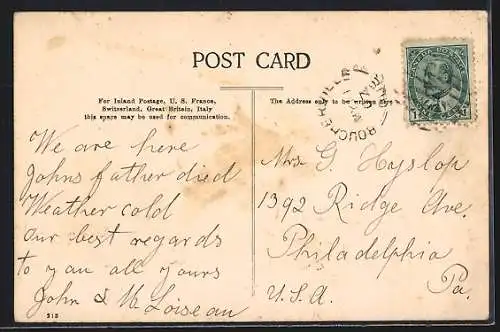 POST CARD
For Inland Postage, U. S. France,
Switzerland, Great Britain, Italy
this space may be used for communication.
The Address only to be written here
BOUCHERVILLE
CANADA POSTAGE
1
We are here
Johns father died
Weather cold
Our best regards
to you all yours
John & M Loiseau
Mrs G Hyslop
1392 Ridge Ave.
Philadelphia
U.S.A. Pa.
313